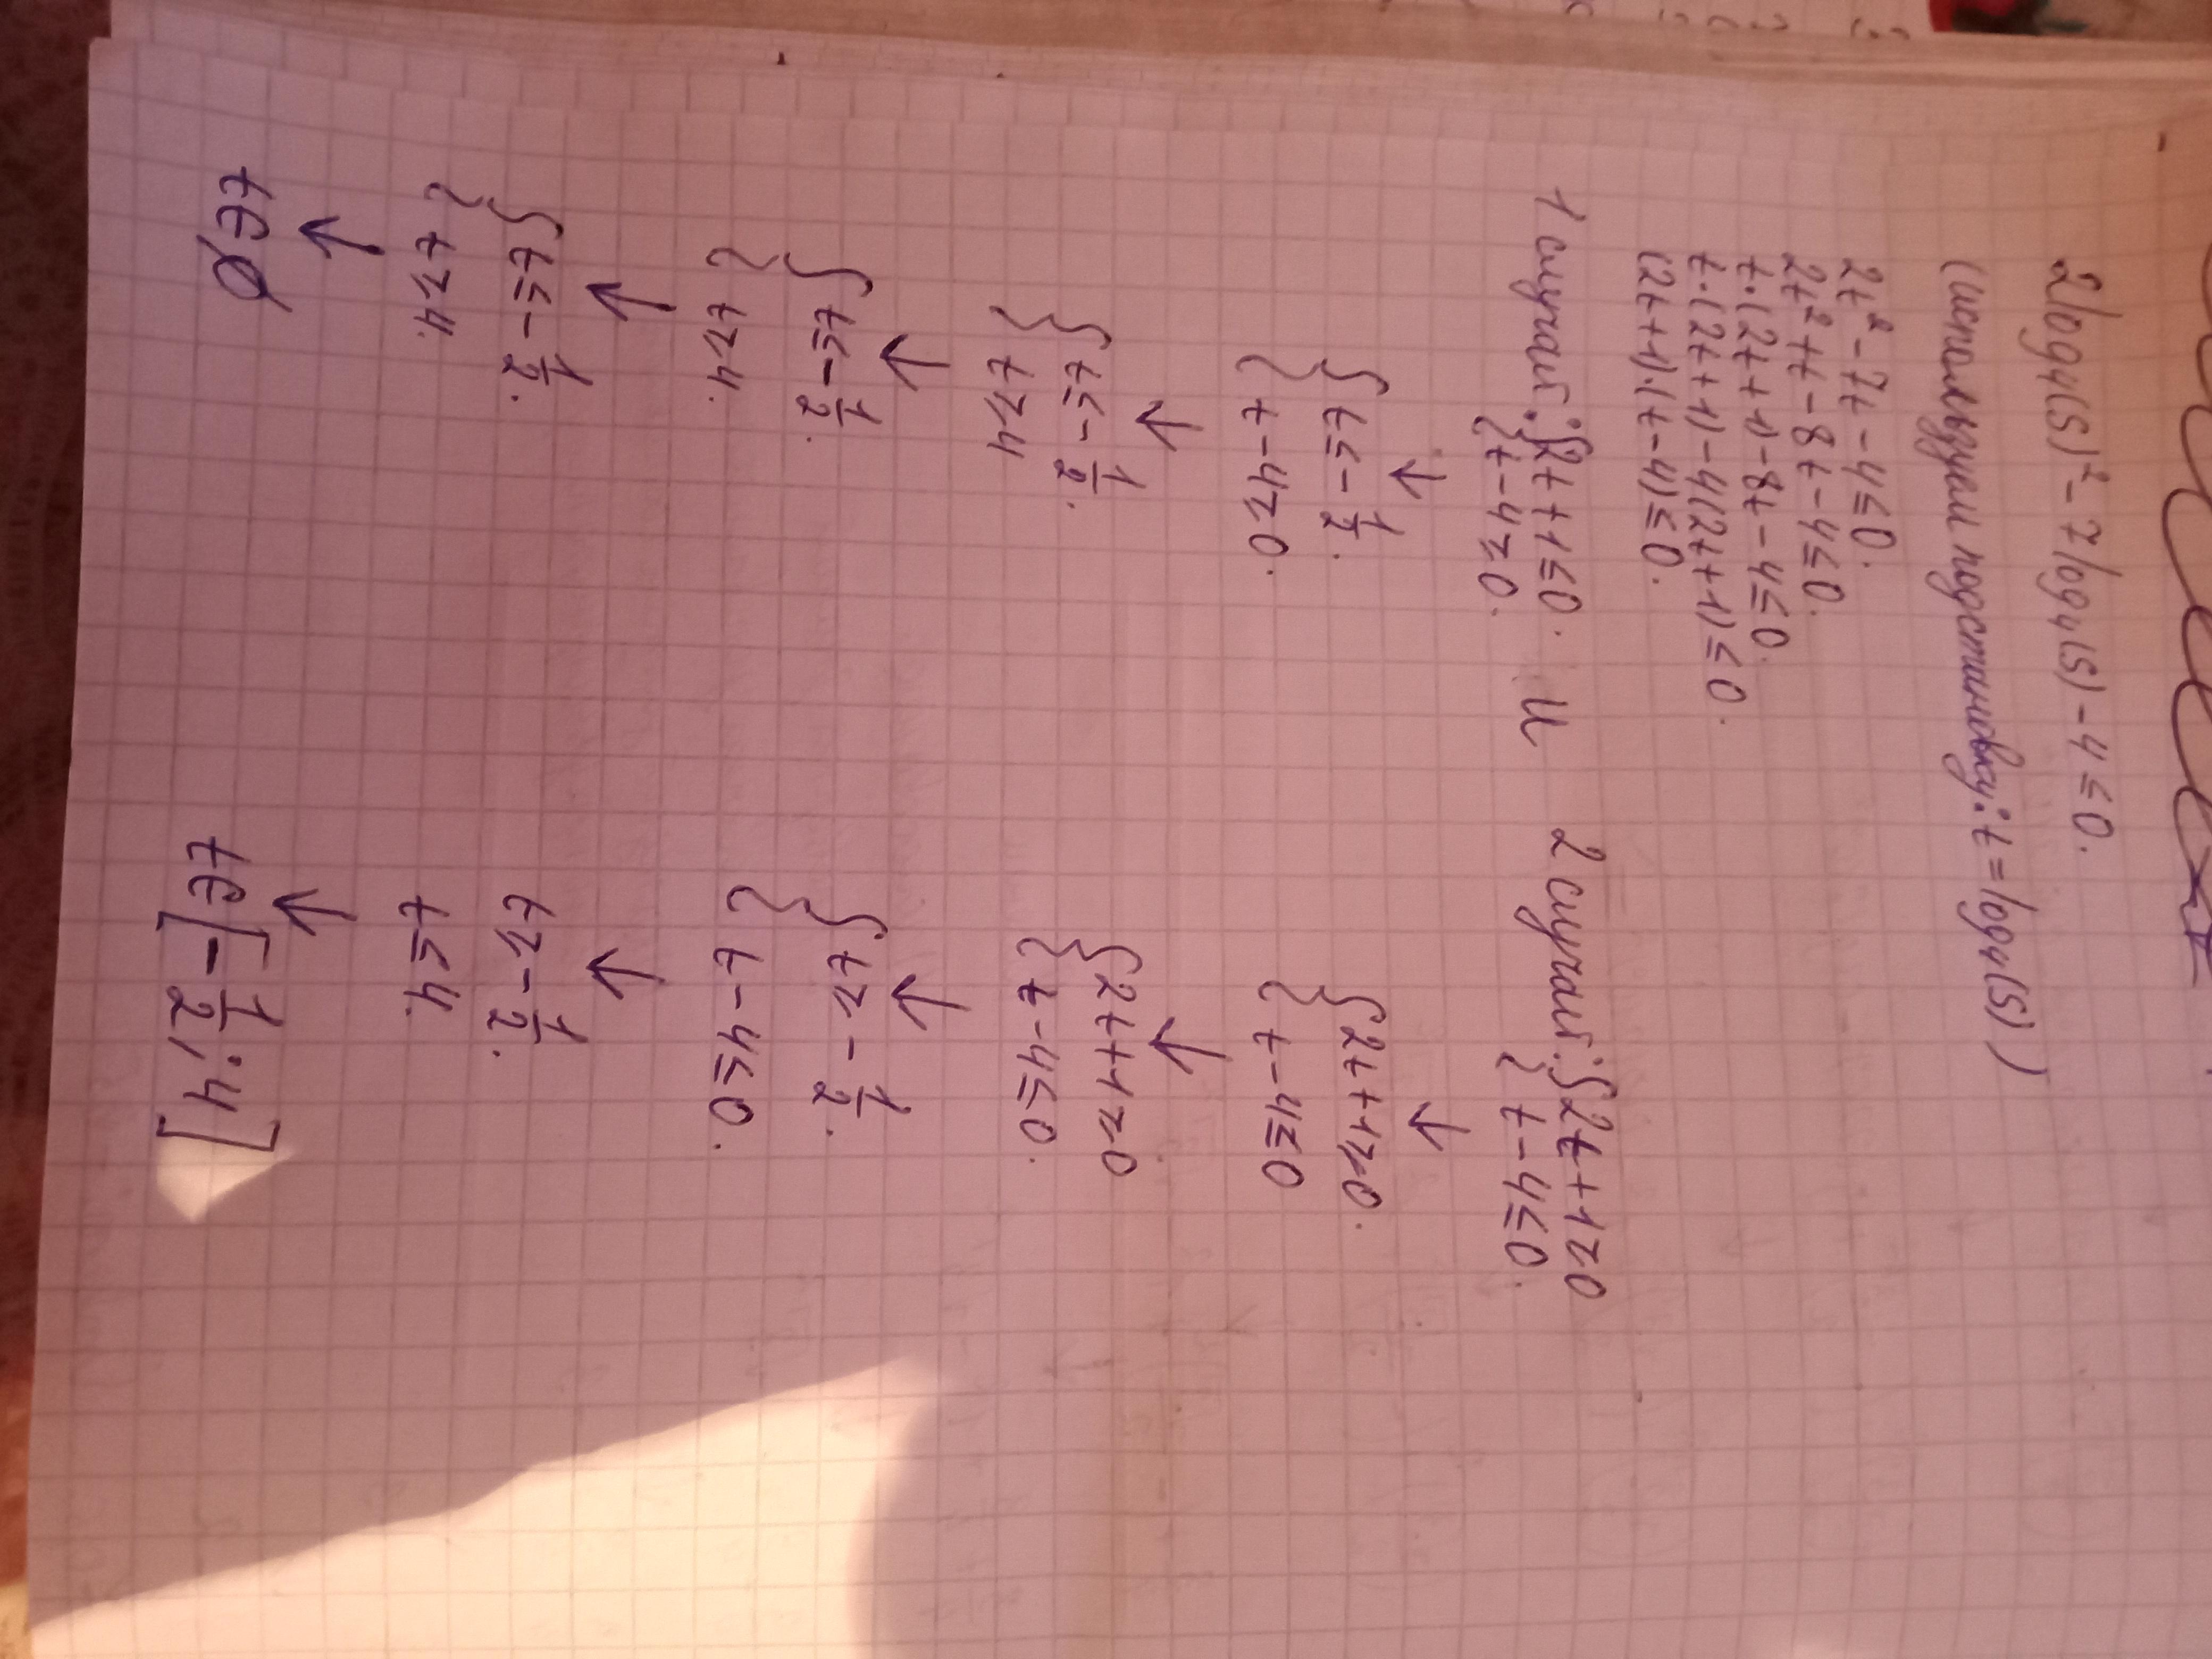 2log₄(5)² - 7log₄(5) - 4 ≤ 0.
(используем подстановку: t = log₄(5))
2t² - 7t - 4 ≤ 0.
2t² + t - 8t - 4 ≤ 0.
t·(2t + 1) - 8t - 4 ≤ 0.
t·(2t + 1) - 4(2t + 1) ≤ 0.
(2t + 1)·(t - 4) ≤ 0.
1 случай: { 2t + 1 ≤ 0. и 2 случай: { 2t + 1 ≥ 0
{ t - 4 ≥ 0. { t - 4 ≤ 0.
↓ ↓
{ t ≤ - 1/2. { 2t + 1 ≥ 0.
{ t - 4 ≥ 0. { t - 4 ≤ 0
↓ ↓
{ t ≤ - 1/2. { 2t + 1 ≥ 0
{ t ≥ 4 { t - 4 ≤ 0.
↓ ↓
{ t ≤ - 1/2. { t ≥ - 1/2.
{ t ≥ 4. { t - 4 ≤ 0.
↓ ↓
{ t ≤ - 1/2. t ≥ - 1/2.
{ t ≥ 4. t ≤ 4.
↓ ↓
t ∈ ∅ t ∈ [- 1/2; 4]